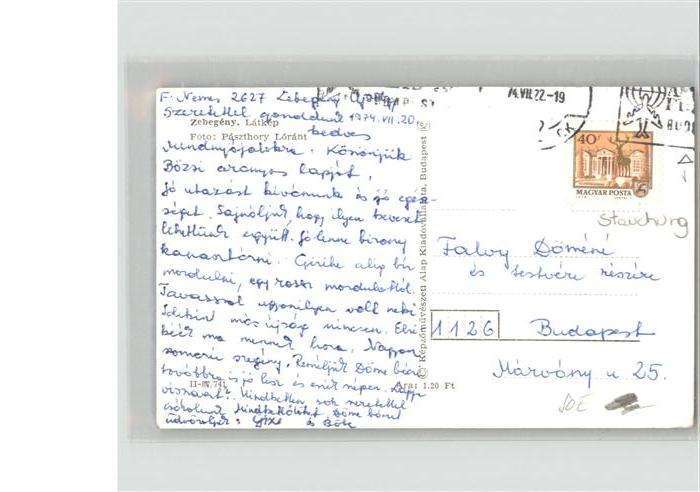 F. Nemes 2627 Zebegény
Szeretettel gondolunk 1974.VII.20.
Zebegény. Látkép
kedves
Foto: Pászthory Lóránt
Mindnyájatokra. Köszönjük
Bözsi aranyos lapját,
Jó utazást kívánunk és jó egész-
séget. Sajnáljuk, hogy ilyen keveset
lehettünk együtt. Jó lenne bizony
kanasztázni. Gizike alig bír
mozdulni, egy rossz mozdulattól.
Tavasszal ugyanilyen volt neki
más újság nincsen. Elvi
ma mennek haza. Nagyon
szomorú szegény. Reméljük Döme bácsi
továbbra is jó lesz és
vissza Mindketten sok szeretettel
csókolunk Mindnyájatokat Döme bácsit
üdvözöljük: és Böbe
II-IV.741
Ára: 1.20 Ft
© Képzőművészeti Alap Kiadóvállalata, Budapest
74.VII.22-19
40f
MAGYAR POSTA
Stauchung
Falvy Döméné
és testvére részére
1126 Budapest
Márvány u 25.